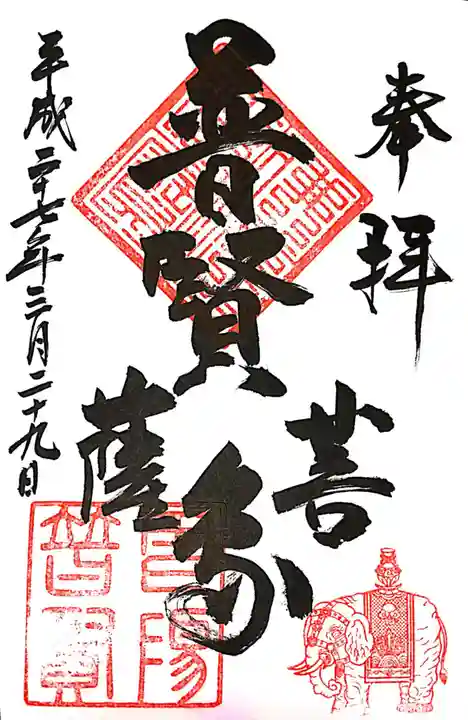 奉拝
普賢象
菩薩
平成二十七年三月二十九日